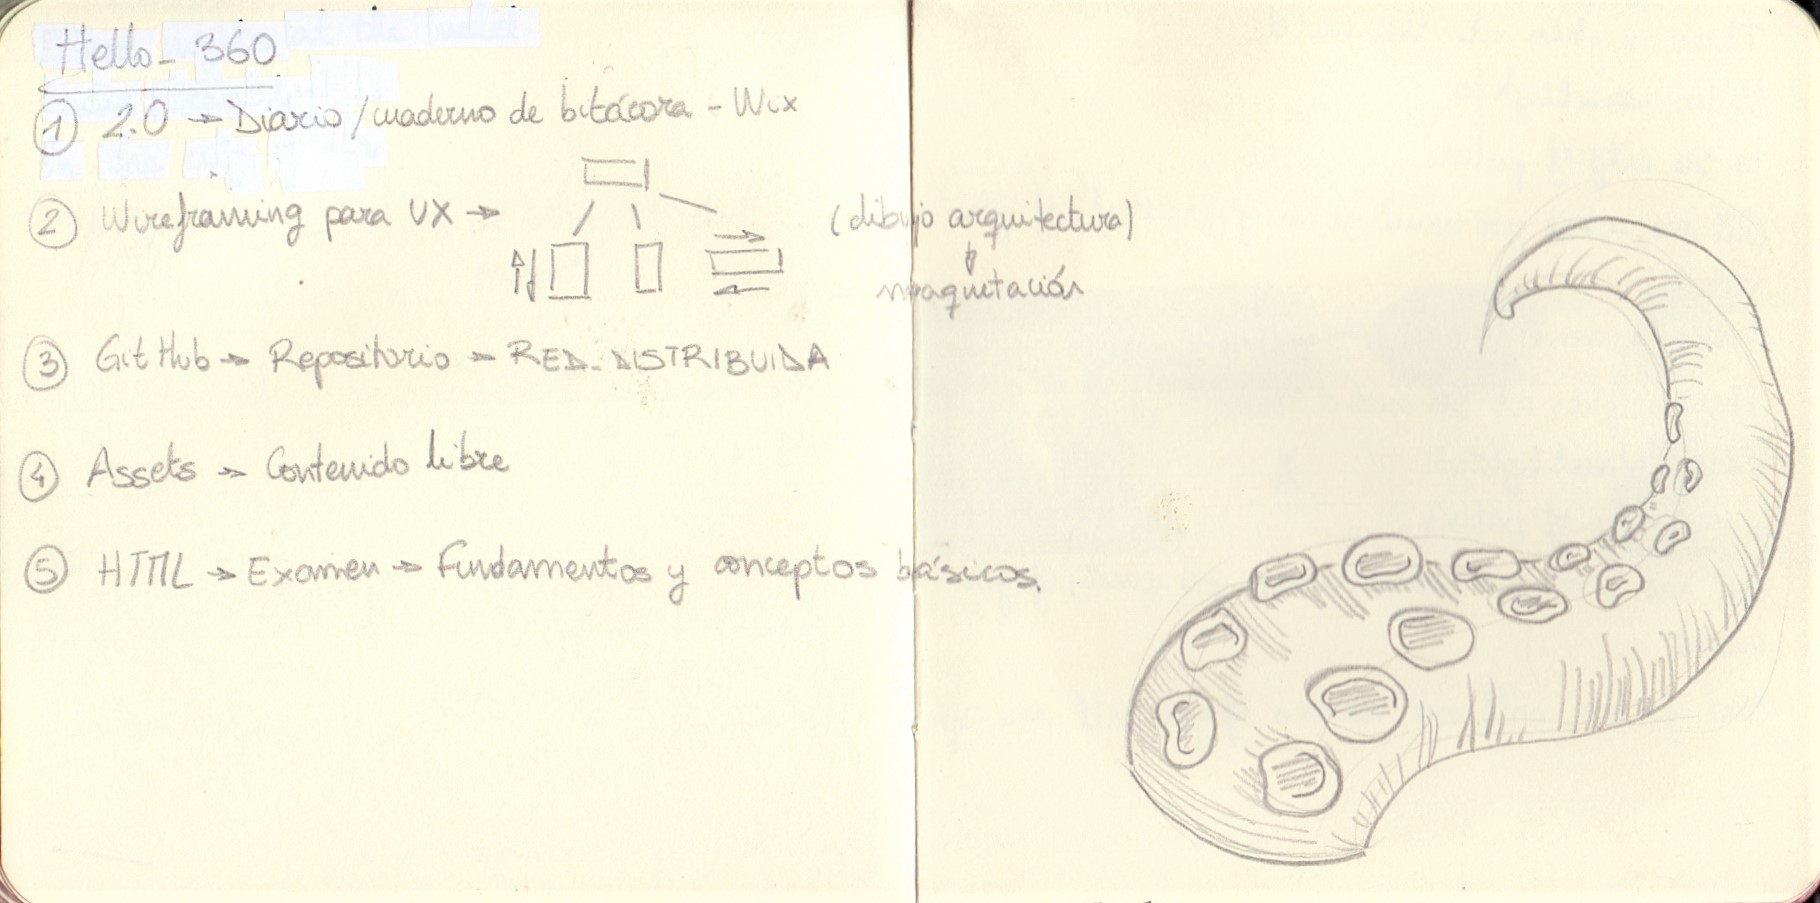 Hello - 360
① 2.0 → Diario/cuaderno de bitácora - Wix
② Wireframing para UX → (dibujo arquitectura)
↓
maquetación
③ GitHub → Repositorio → RED. DISTRIBUIDA
④ Assets → Contenido libre
⑤ HTML → Examen → Fundamentos y conceptos básicos.